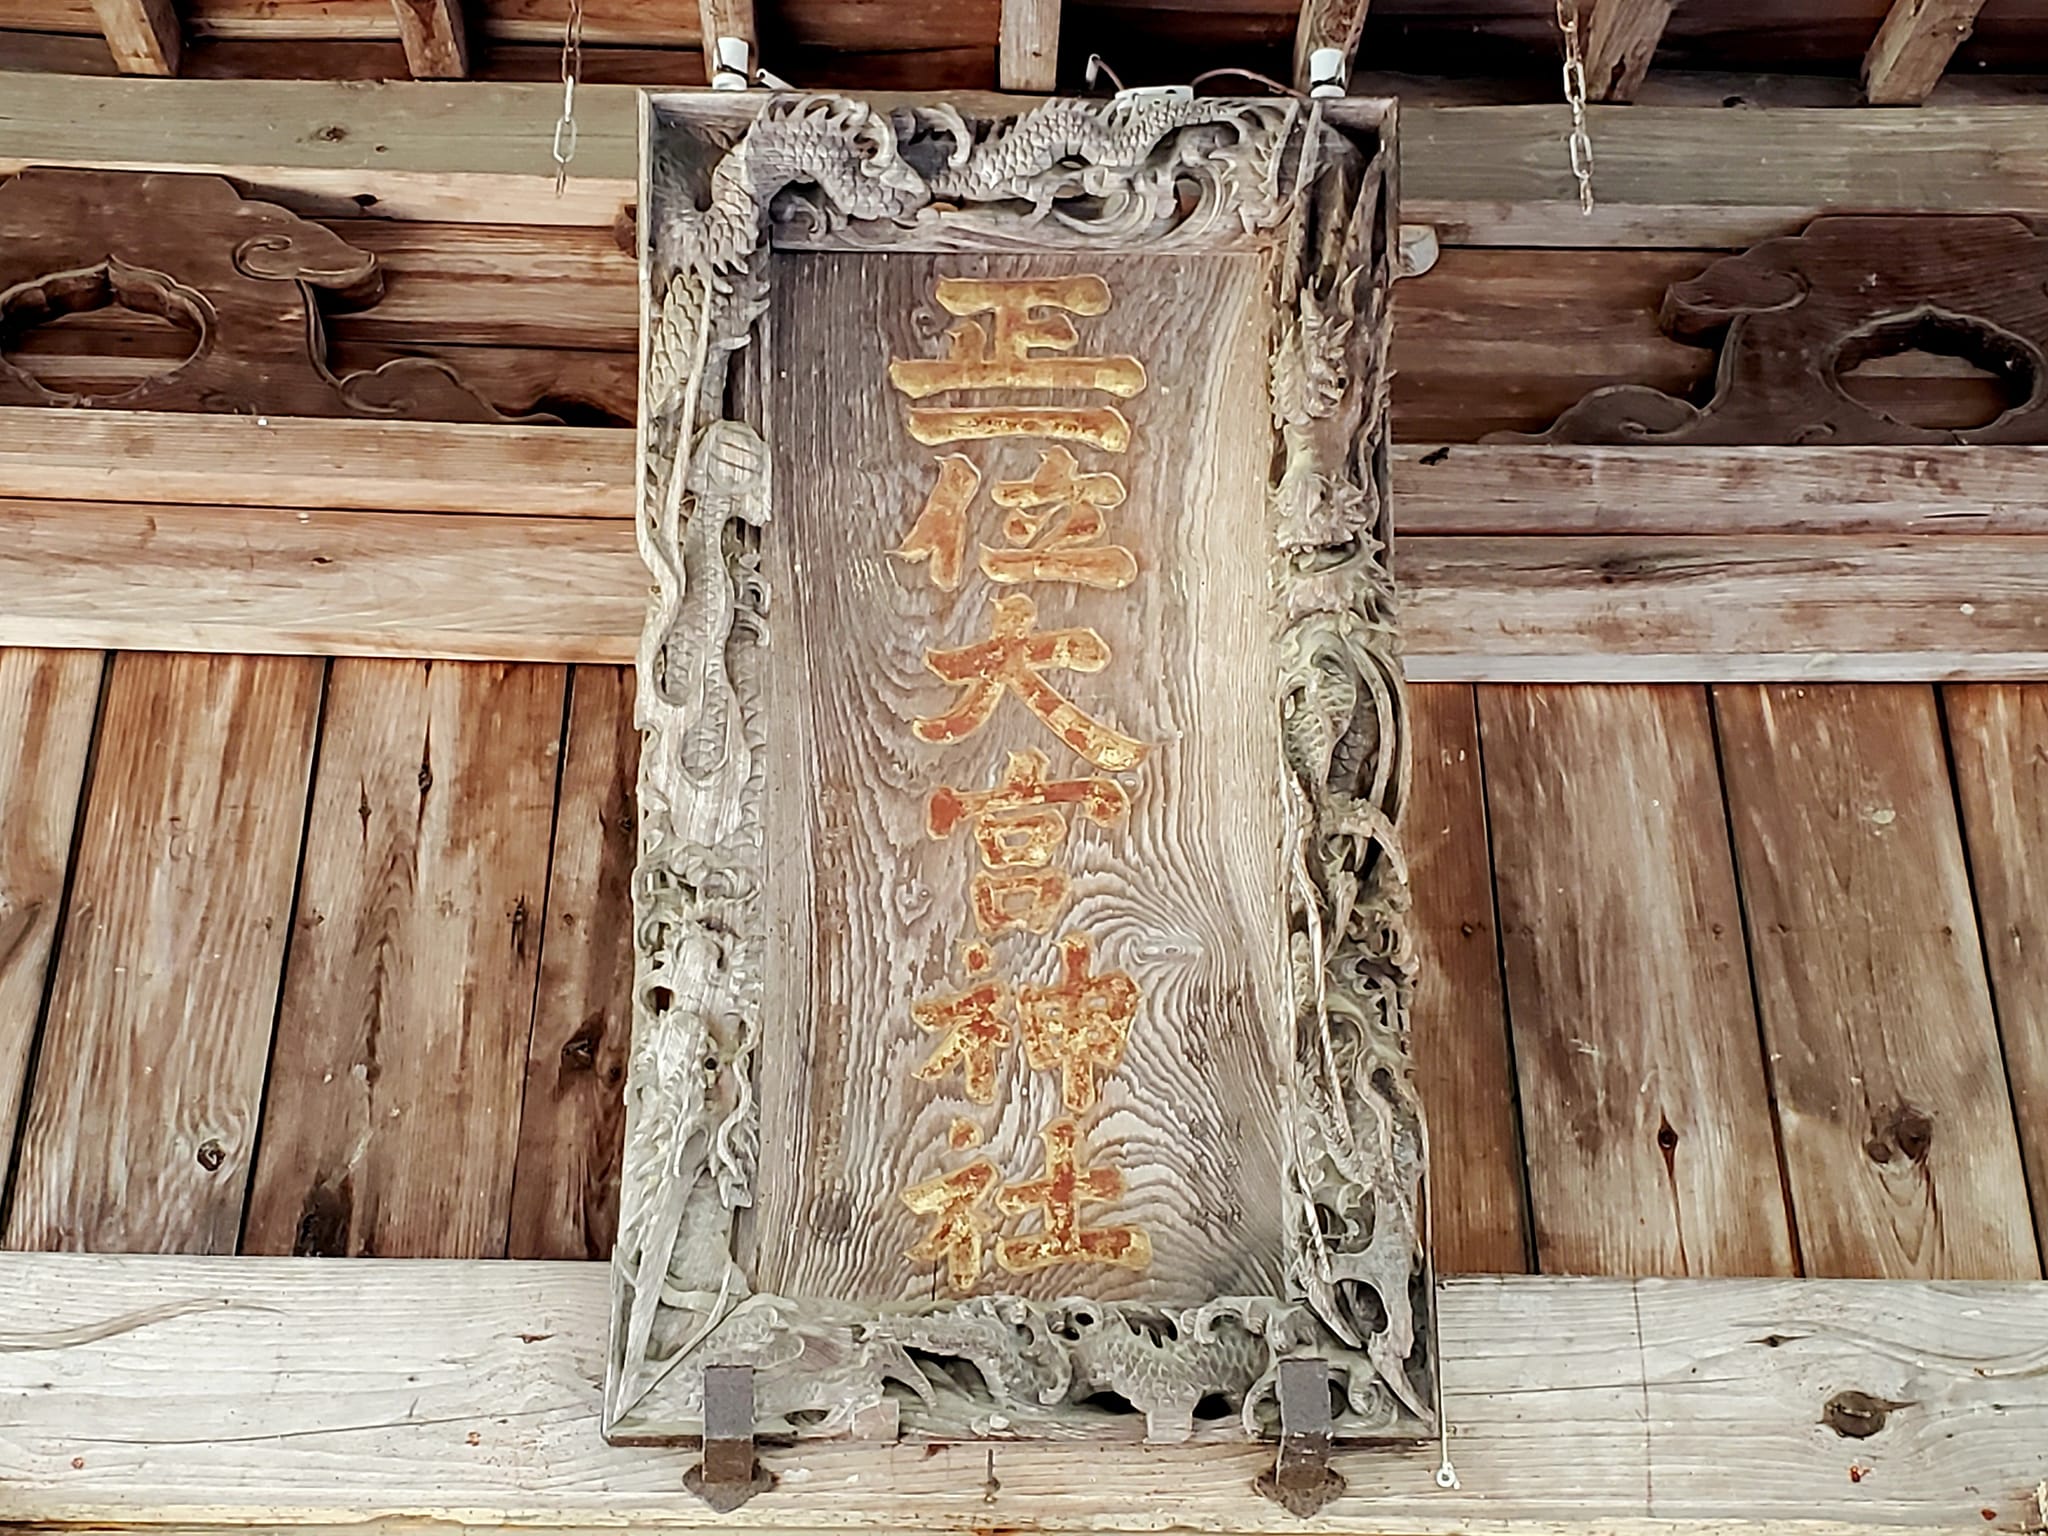 正一位大宮神社